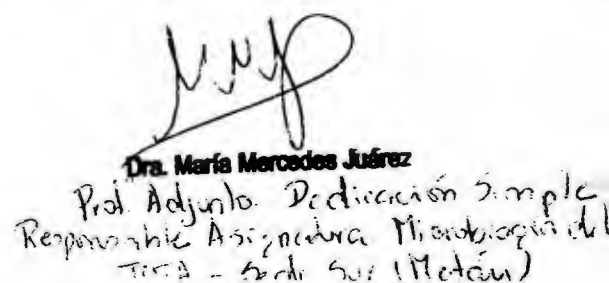 Dra. María Mercedes Juárez
Prof. Adjunto Dedicación Simple
Responsable Asignatura Microbiología del
- Sede Sur (Metán)